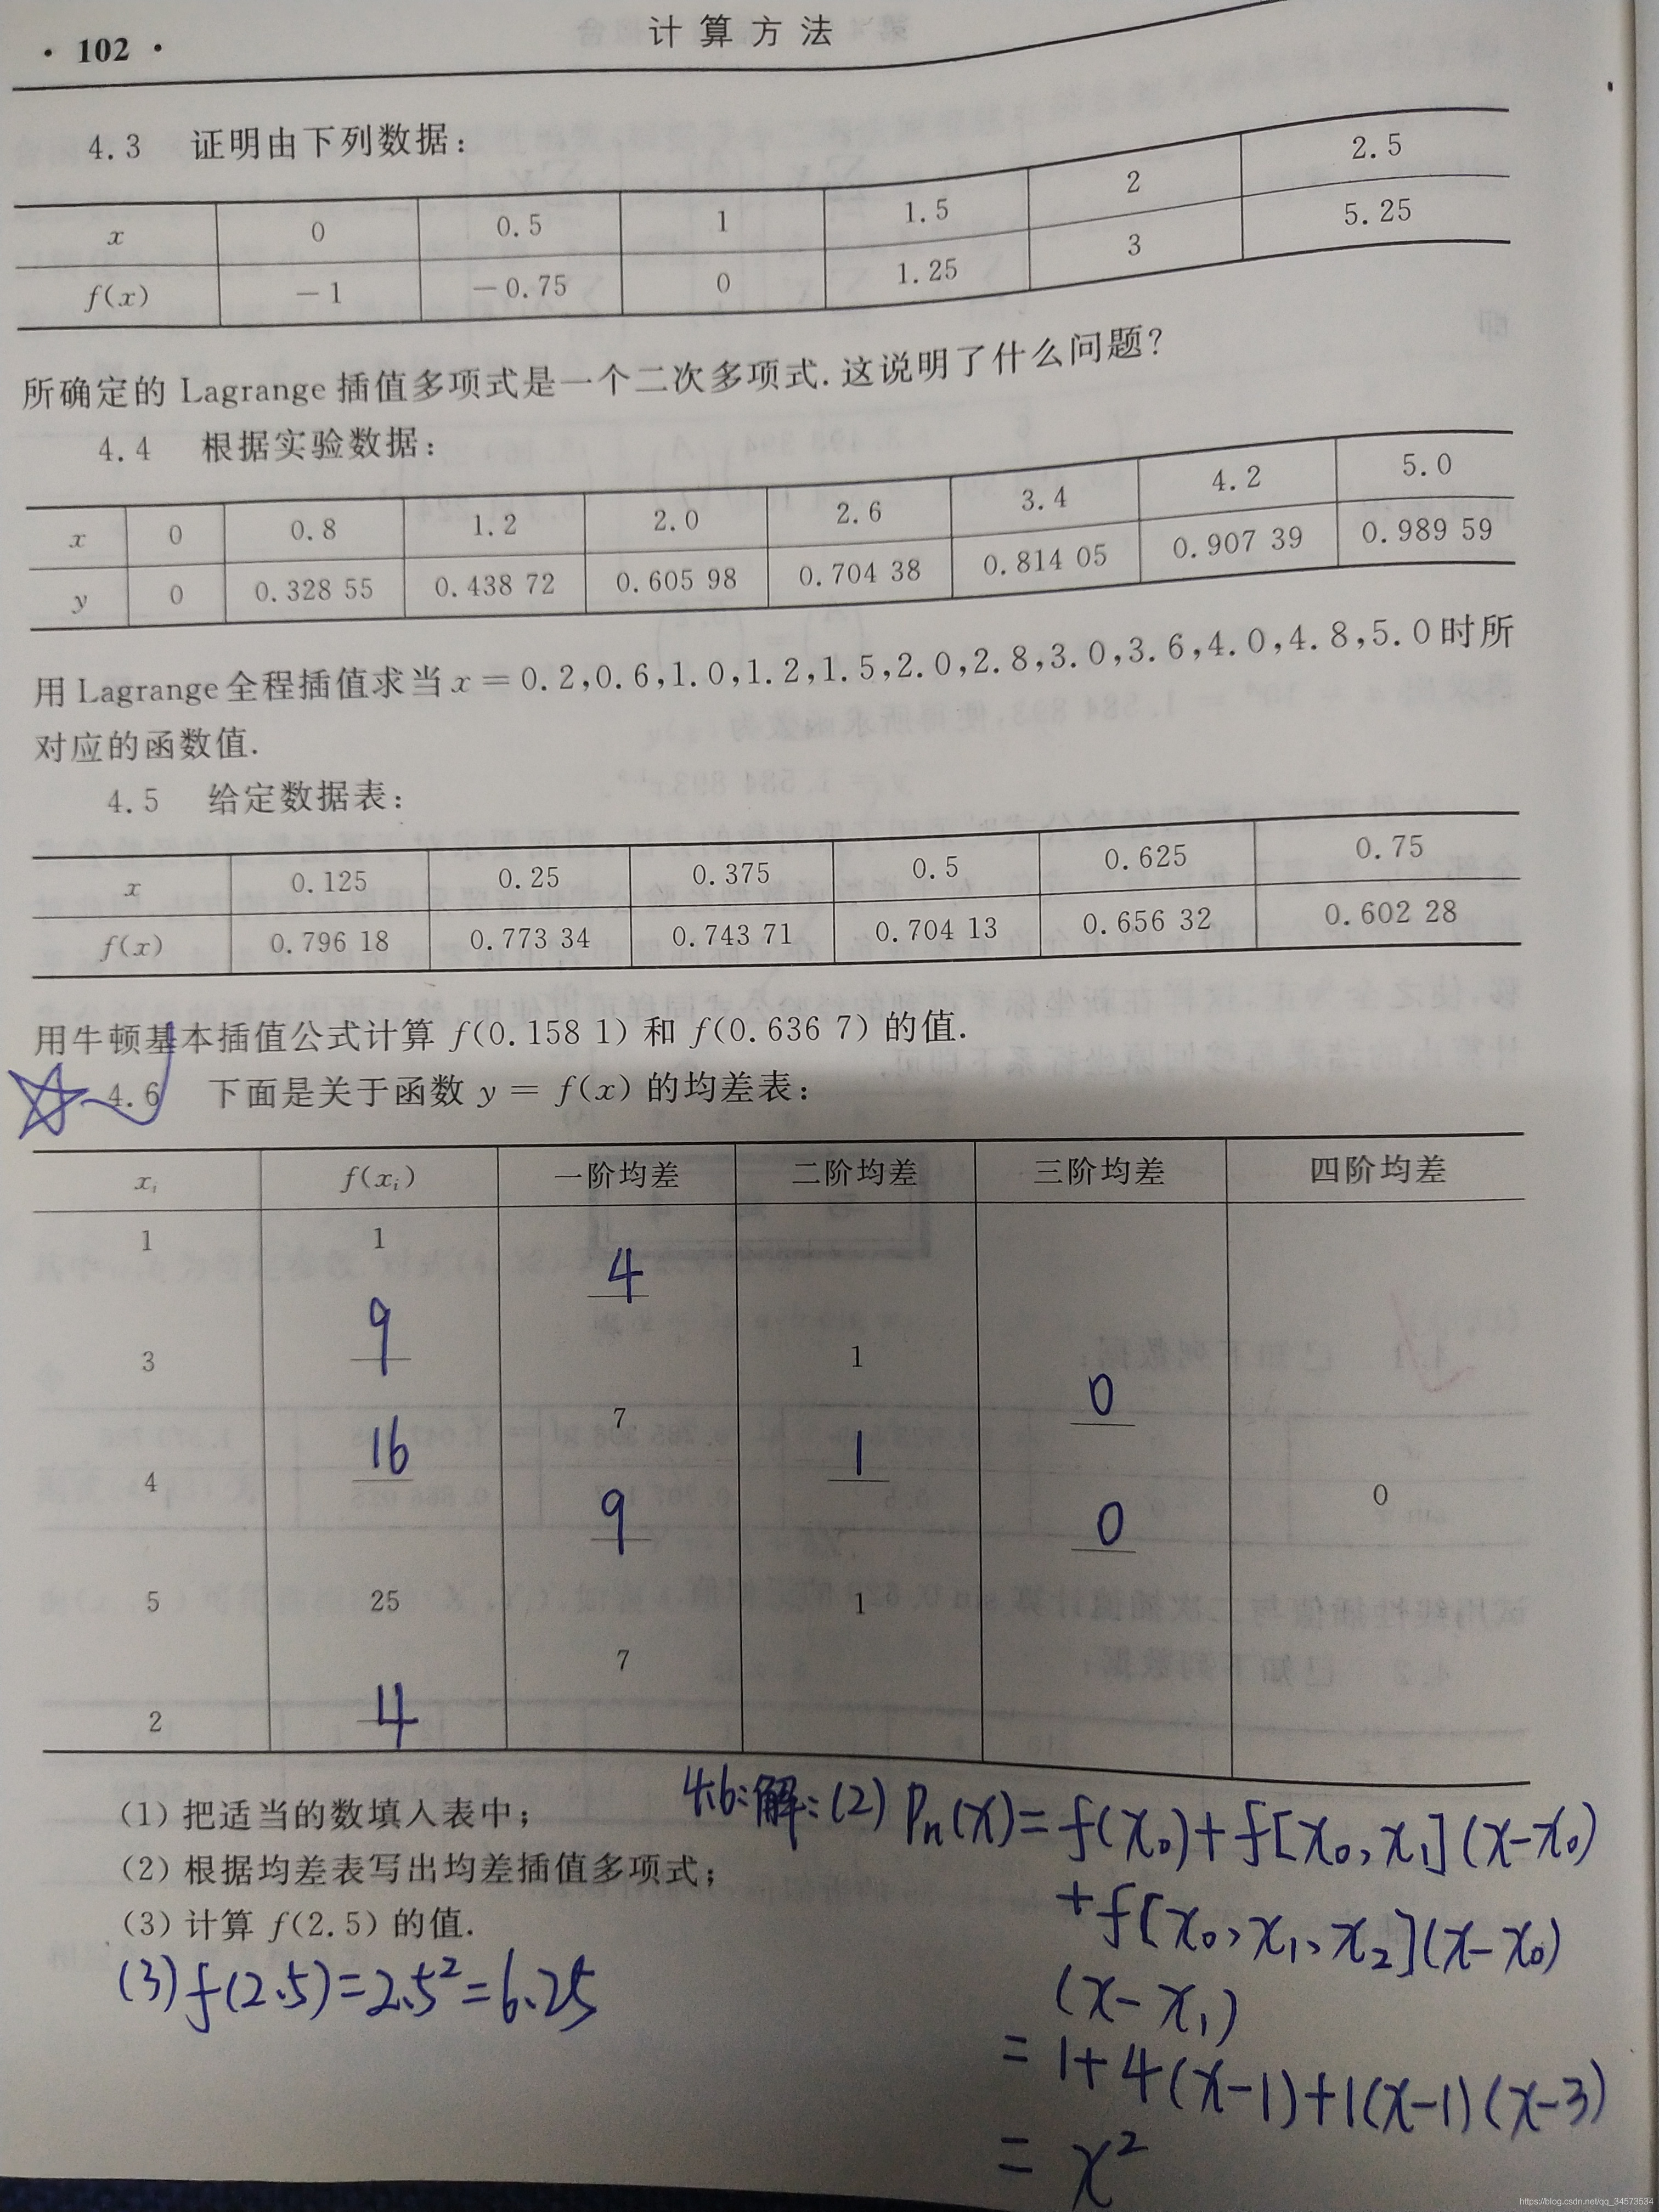 · 102 ·
计算方法
4.3 证明由下列数据:
x 0 0.5 1 1.5 2 2.5
f(x) −1 −0.75 0 1.25 3 5.25
所确定的 Lagrange 插值多项式是一个二次多项式.这说明了什么问题?
4.4 根据实验数据:
x 0 0.8 1.2 2.0 2.6 3.4 4.2 5.0
y 0 0.328 55 0.438 72 0.605 98 0.704 38 0.814 05 0.907 39 0.989 59
用 Lagrange 全程插值求当 x = 0.2,0.6,1.0,1.2,1.5,2.0,2.8,3.0,3.6,4.0,4.8,5.0 时所
对应的函数值.
4.5 给定数据表:
x 0.125 0.25 0.375 0.5 0.625 0.75
f(x) 0.796 18 0.773 34 0.743 71 0.704 13 0.656 32 0.602 28
用牛顿基本插值公式计算 f(0.158 1) 和 f(0.636 7) 的值.
4.6 下面是关于函数 y = f(x) 的均差表:
xᵢ f(xᵢ) 一阶均差 二阶均差 三阶均差 四阶均差
1 1
4
9
3 1
0
7
16 1
4 0
9 0
5 25 1
7
2 4
(1) 把适当的数填入表中;
(2) 根据均差表写出均差插值多项式;
(3) 计算 f(2.5) 的值.
(3) f(2.5)=2.5²=6.25
4.6:解:(2) Pₙ(x)=f(x₀)+f[x₀,x₁](x-x₀)
+f[x₀,x₁,x₂](x-x₀)
(x-x₁)
= 1+4(x-1)+1(x-1)(x-3)
= x²
https://blog.csdn.net/qq_34573534